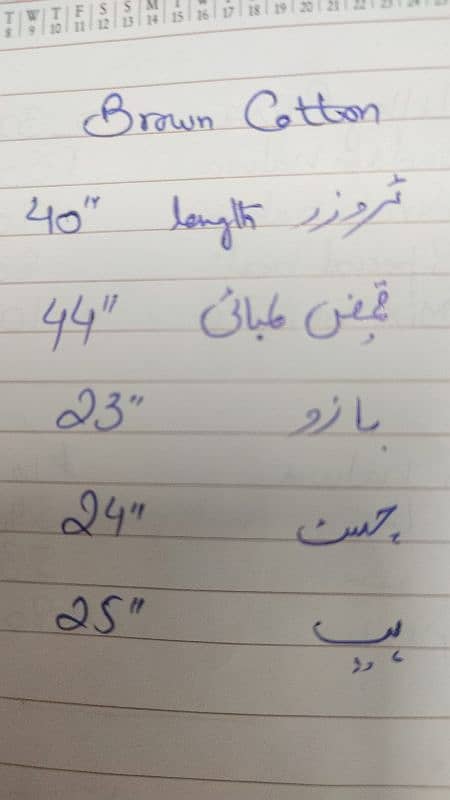 T W T F S S M T W
8 9 10 11 12 13 14 15 16 17 18 19 20 21 22 23 24
Brown Cotton
40" length ٹروزر
44" قمیض لمبائی
23" بازو
24" چسٹ
25" ہپ